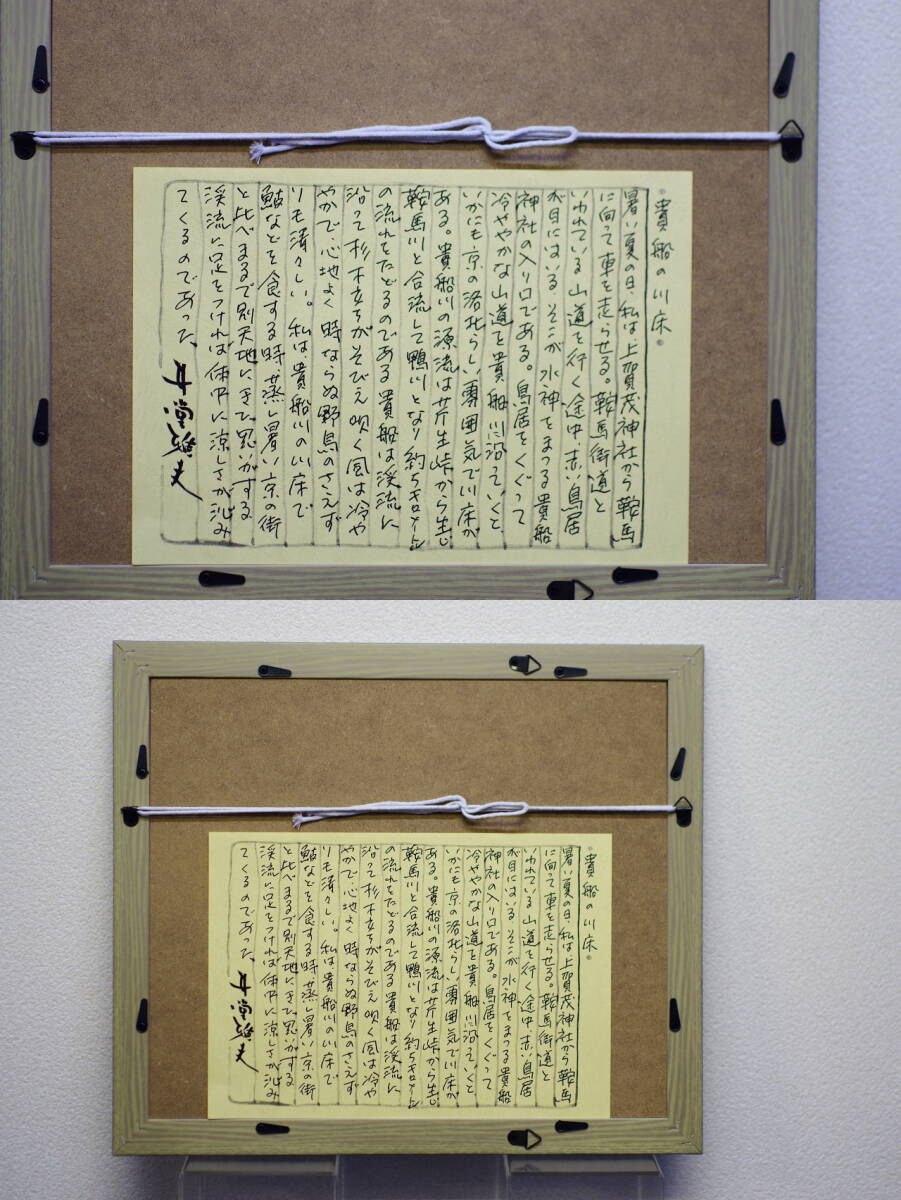 ◦貴船の川床◦
暑い夏の日、私は、上賀茂神社から鞍馬
に向って車を走らせる。鞍馬街道と
いわれている山道を行く途中、赤い鳥居
が目にはいる。そこが水神をまつる貴船
神社の入り口である。鳥居をくぐって
冷ややかな山道を貴船川に沿っていくと、
いかにも京の洛北らしい雰囲気で川床が
ある。貴船川の源流は芹生峠から生じ
鞍馬川と合流して鴨川となり約5キロメートル
の流れをたどるのである貴船は渓流に
沿って杉木立ちがそびえ吹く風は冷や
やかで、心地よく時ならぬ野鳥のさえず
りも清々しい。私は、貴船川の川床で
鮎などを食する時、蒸し暑い京の街
と比べまるで別天地にきた思いがする
渓流に足をつければ体中に涼しさが沁み
てくるのであった。
井堂雅夫
◦貴船の川床◦
暑い夏の日、私は、上賀茂神社から鞍馬
に向って車を走らせる。鞍馬街道と
いわれている山道を行く途中、赤い鳥居
が目にはいる。そこが水神をまつる貴船
神社の入り口である。鳥居をくぐって
冷ややかな山道を貴船川に沿っていくと、
いかにも京の洛北らしい雰囲気で川床が
ある。貴船川の源流は芹生峠から生じ
鞍馬川と合流して鴨川となり約5キロメートル
の流れをたどるのである貴船は渓流に
沿って杉木立ちがそびえ吹く風は冷や
やかで、心地よく時ならぬ野鳥のさえず
りも清々しい。私は、貴船川の川床で
鮎などを食する時、蒸し暑い京の街
と比べまるで別天地にきた思いがする
渓流に足をつければ体中に涼しさが沁み
てくるのであった。
井堂雅夫